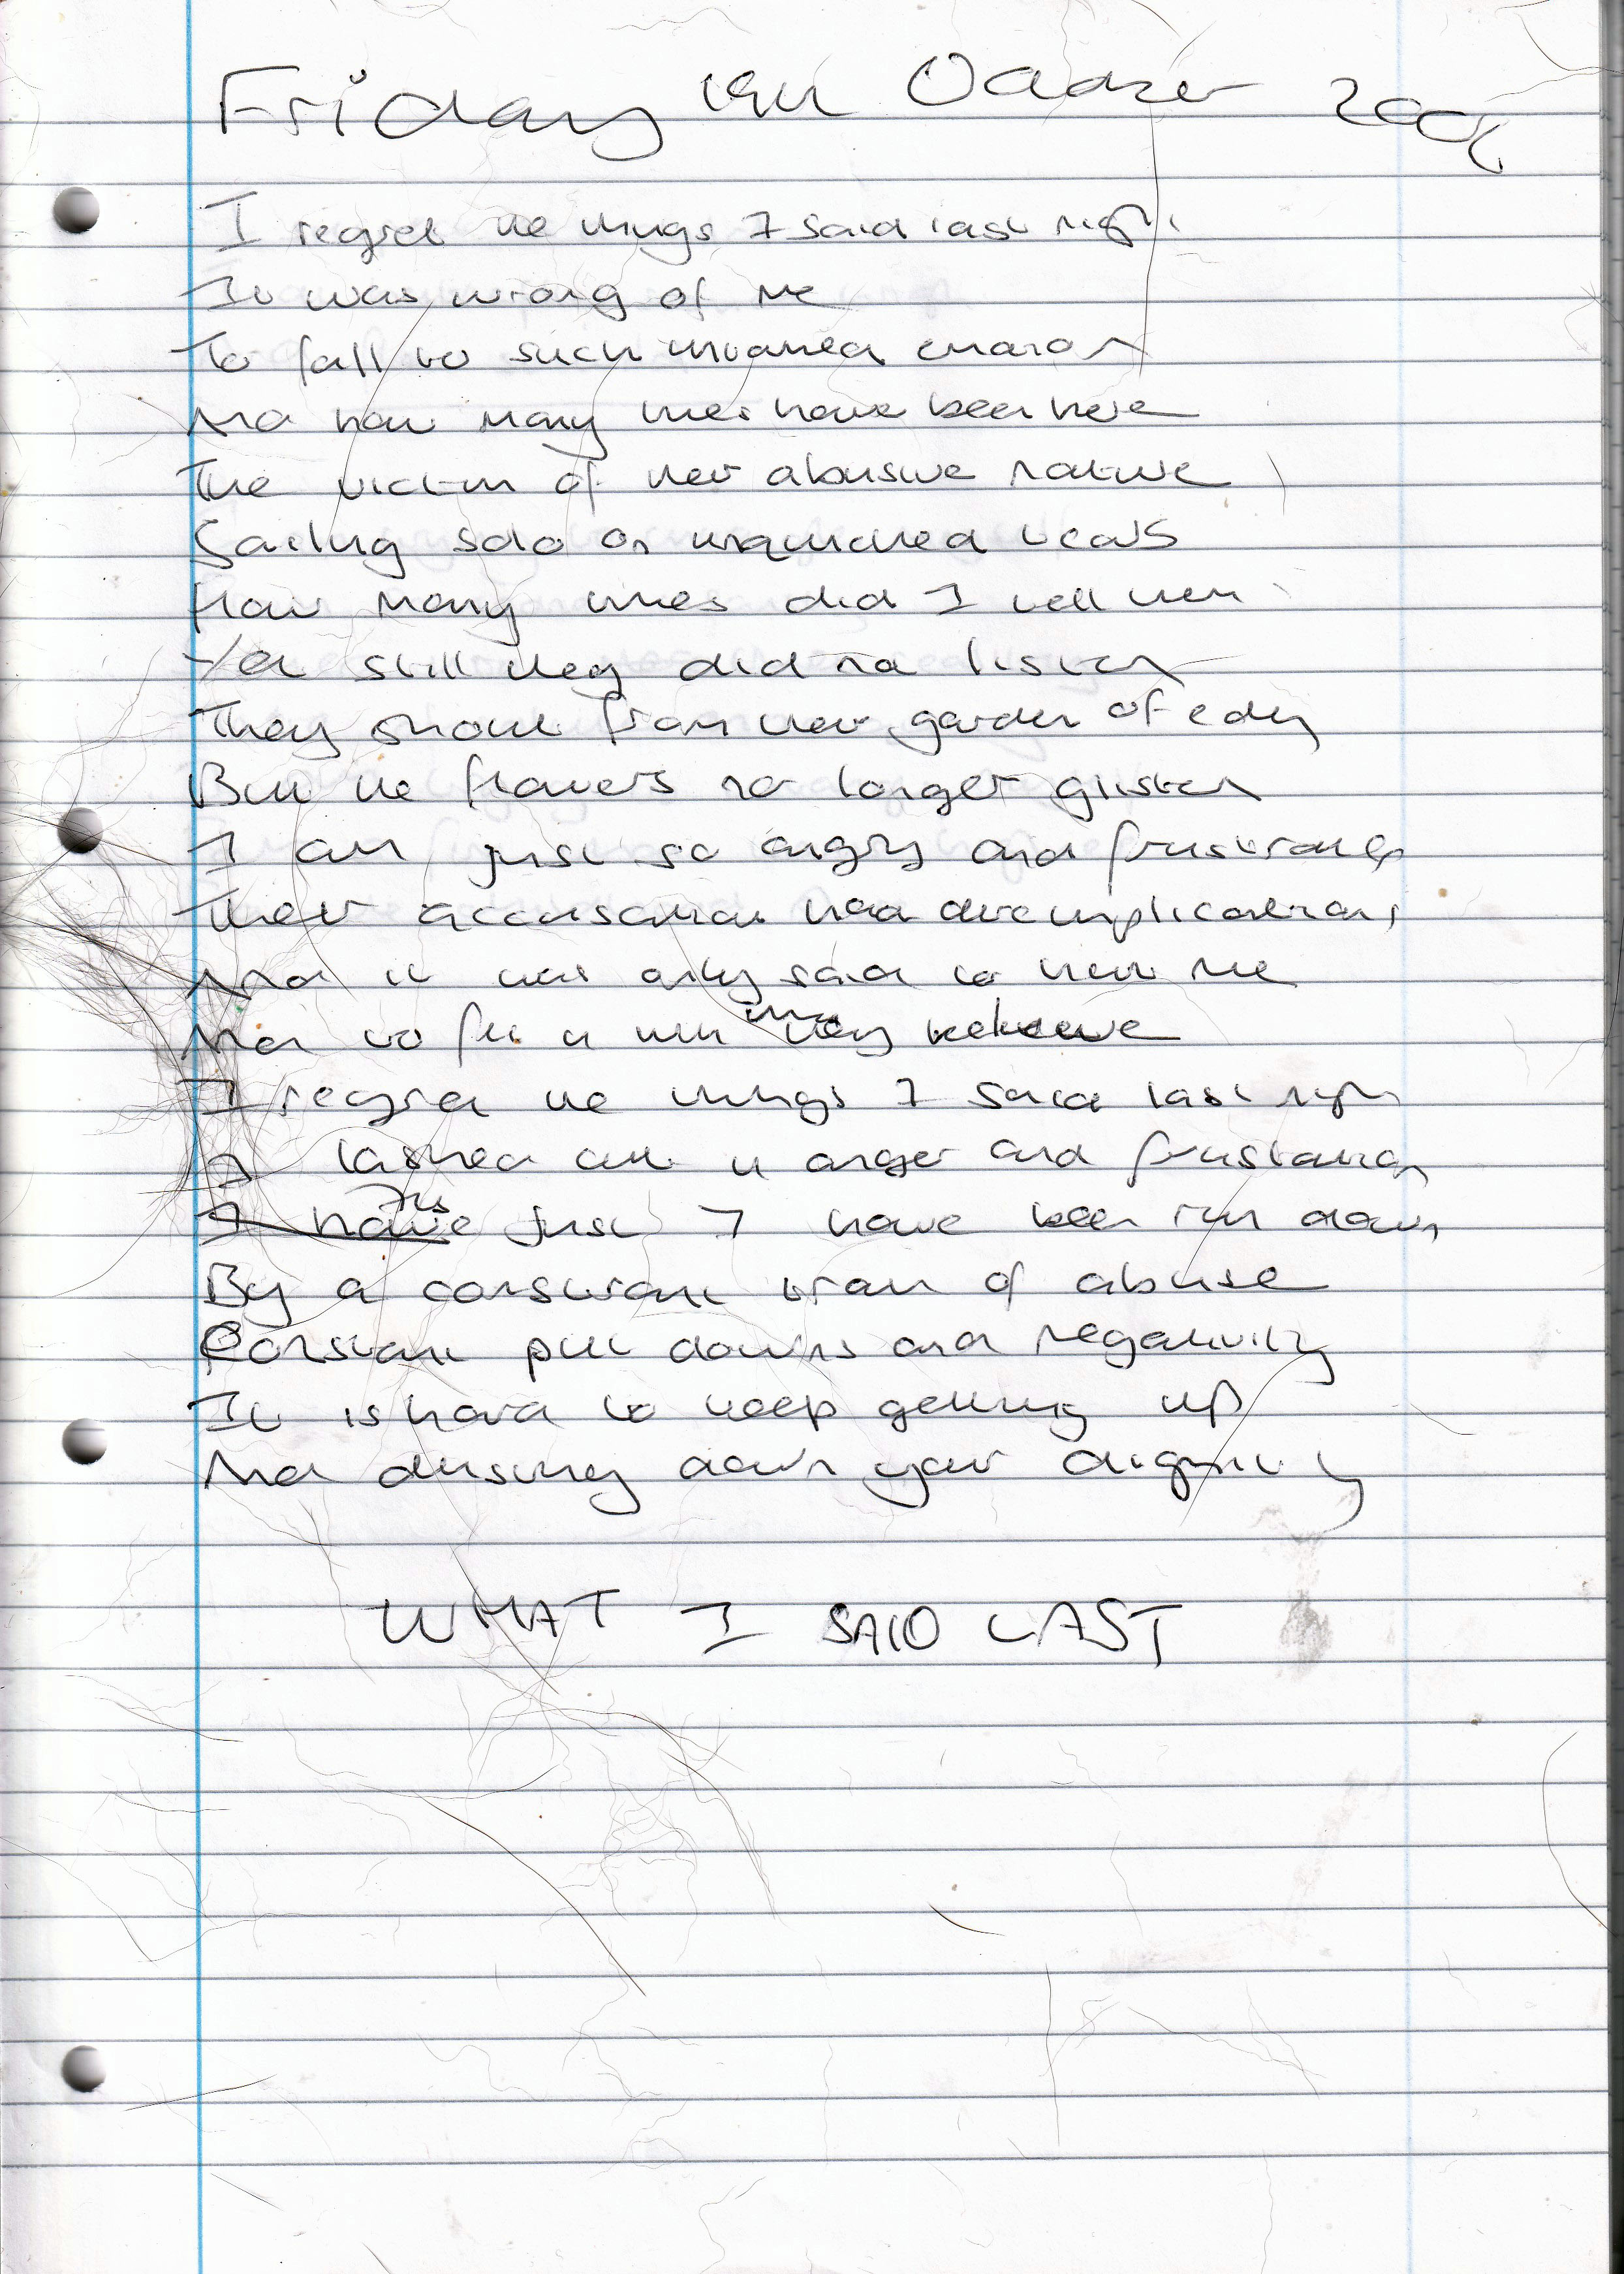 Friday October
I regret the things I said last night
It was wrong of me
To fall to such
And how many times have been here
The victim of their abusive nature
Sailing solo on boats
How many times did I tell them
Yet still they did not listen
They shout from their garden of
But the flowers no longer glisten
I am just so angry and
Their accusation had dire implications
And it was only said to hurt me
And to fit in with they believe
I regret the things I said last night
I lashed out in anger and frustration
just I have been run down
By a constant train of abuse
Constant put downs and negativity
It is hard to keep getting up
And dusting down your dignity
WHAT I SAID LAST